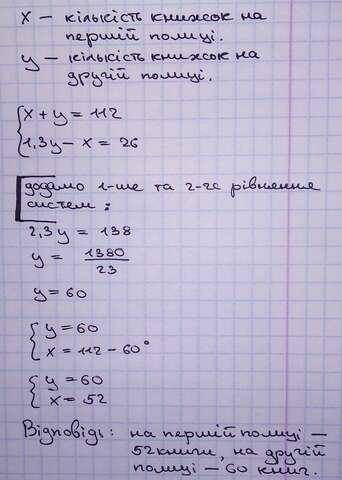 x – кількість книжок на
першій полиці.
y – кількість книжок на
другій полиці.
x + y = 112
1,3y – x = 26
додамо 1-ше та 2-ге рівняння
систем:
2,3y = 138
y = 1380/23
y = 60
y = 60
x = 112 – 60°
y = 60
x = 52
Відповідь: на першій полиці –
52 книги, на другій
полиці – 60 книг.